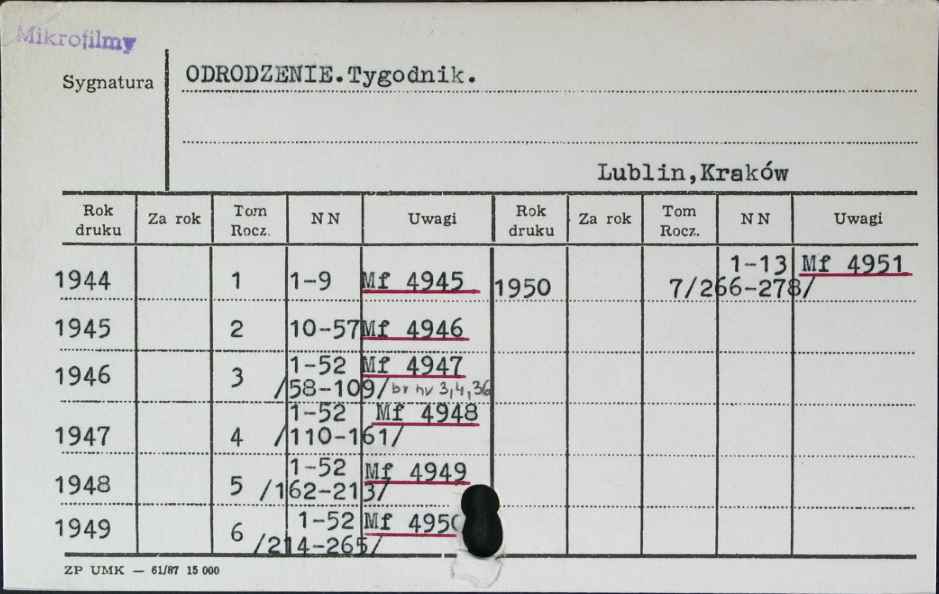 Mikrofilmy
Sygnatura
ODRODZENIE.Tygodnik.
Lublin,Kraków
Rok druku Za rok Tom Rocz. NN Uwagi Rok druku Za rok Tom Rocz. NN Uwagi
1944 1 1-9 Mf 4945 1950 7 1-13 /266-278/ Mf 4951
1945 2 10-57 Mf 4946
1946 3 1-52 /58-109/ Mf 4947 br nr 3,4,36
1947 4 1-52 /110-161/ Mf 4948
1948 5 1-52 /162-213/ Mf 4949
1949 6 1-52 /214-265/ Mf 4950
ZP UMK — 61/87 15 000